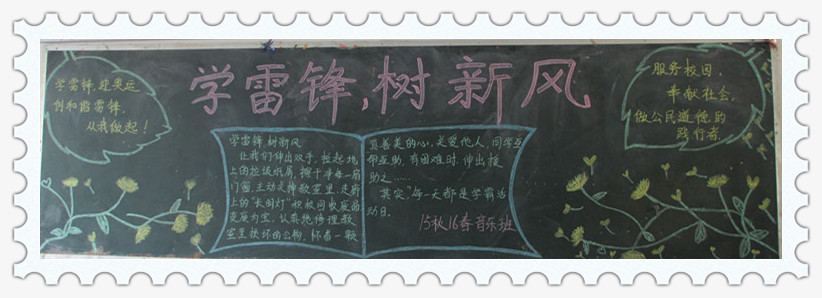 学雷锋,树新风
学雷锋,迎奥运
创和谐雷锋,
从我做起!
学雷锋,树新风
让我们伸出双手,捡起地
上的垃圾纸屑,擦干净每一扇
门窗,主动关掉教室里、走廊
上的“长明灯”积极回收废品
变废为宝,认真地修理教
室里损坏的公物,怀着一颗
真善美的心,关爱他人,同学互
帮互助,有困难时,伸出援
助之……
其实“每一天都是学雷活
动日。
15秋16春音乐班
服务校园,
奉献社会,
做公民道德的
践行者.